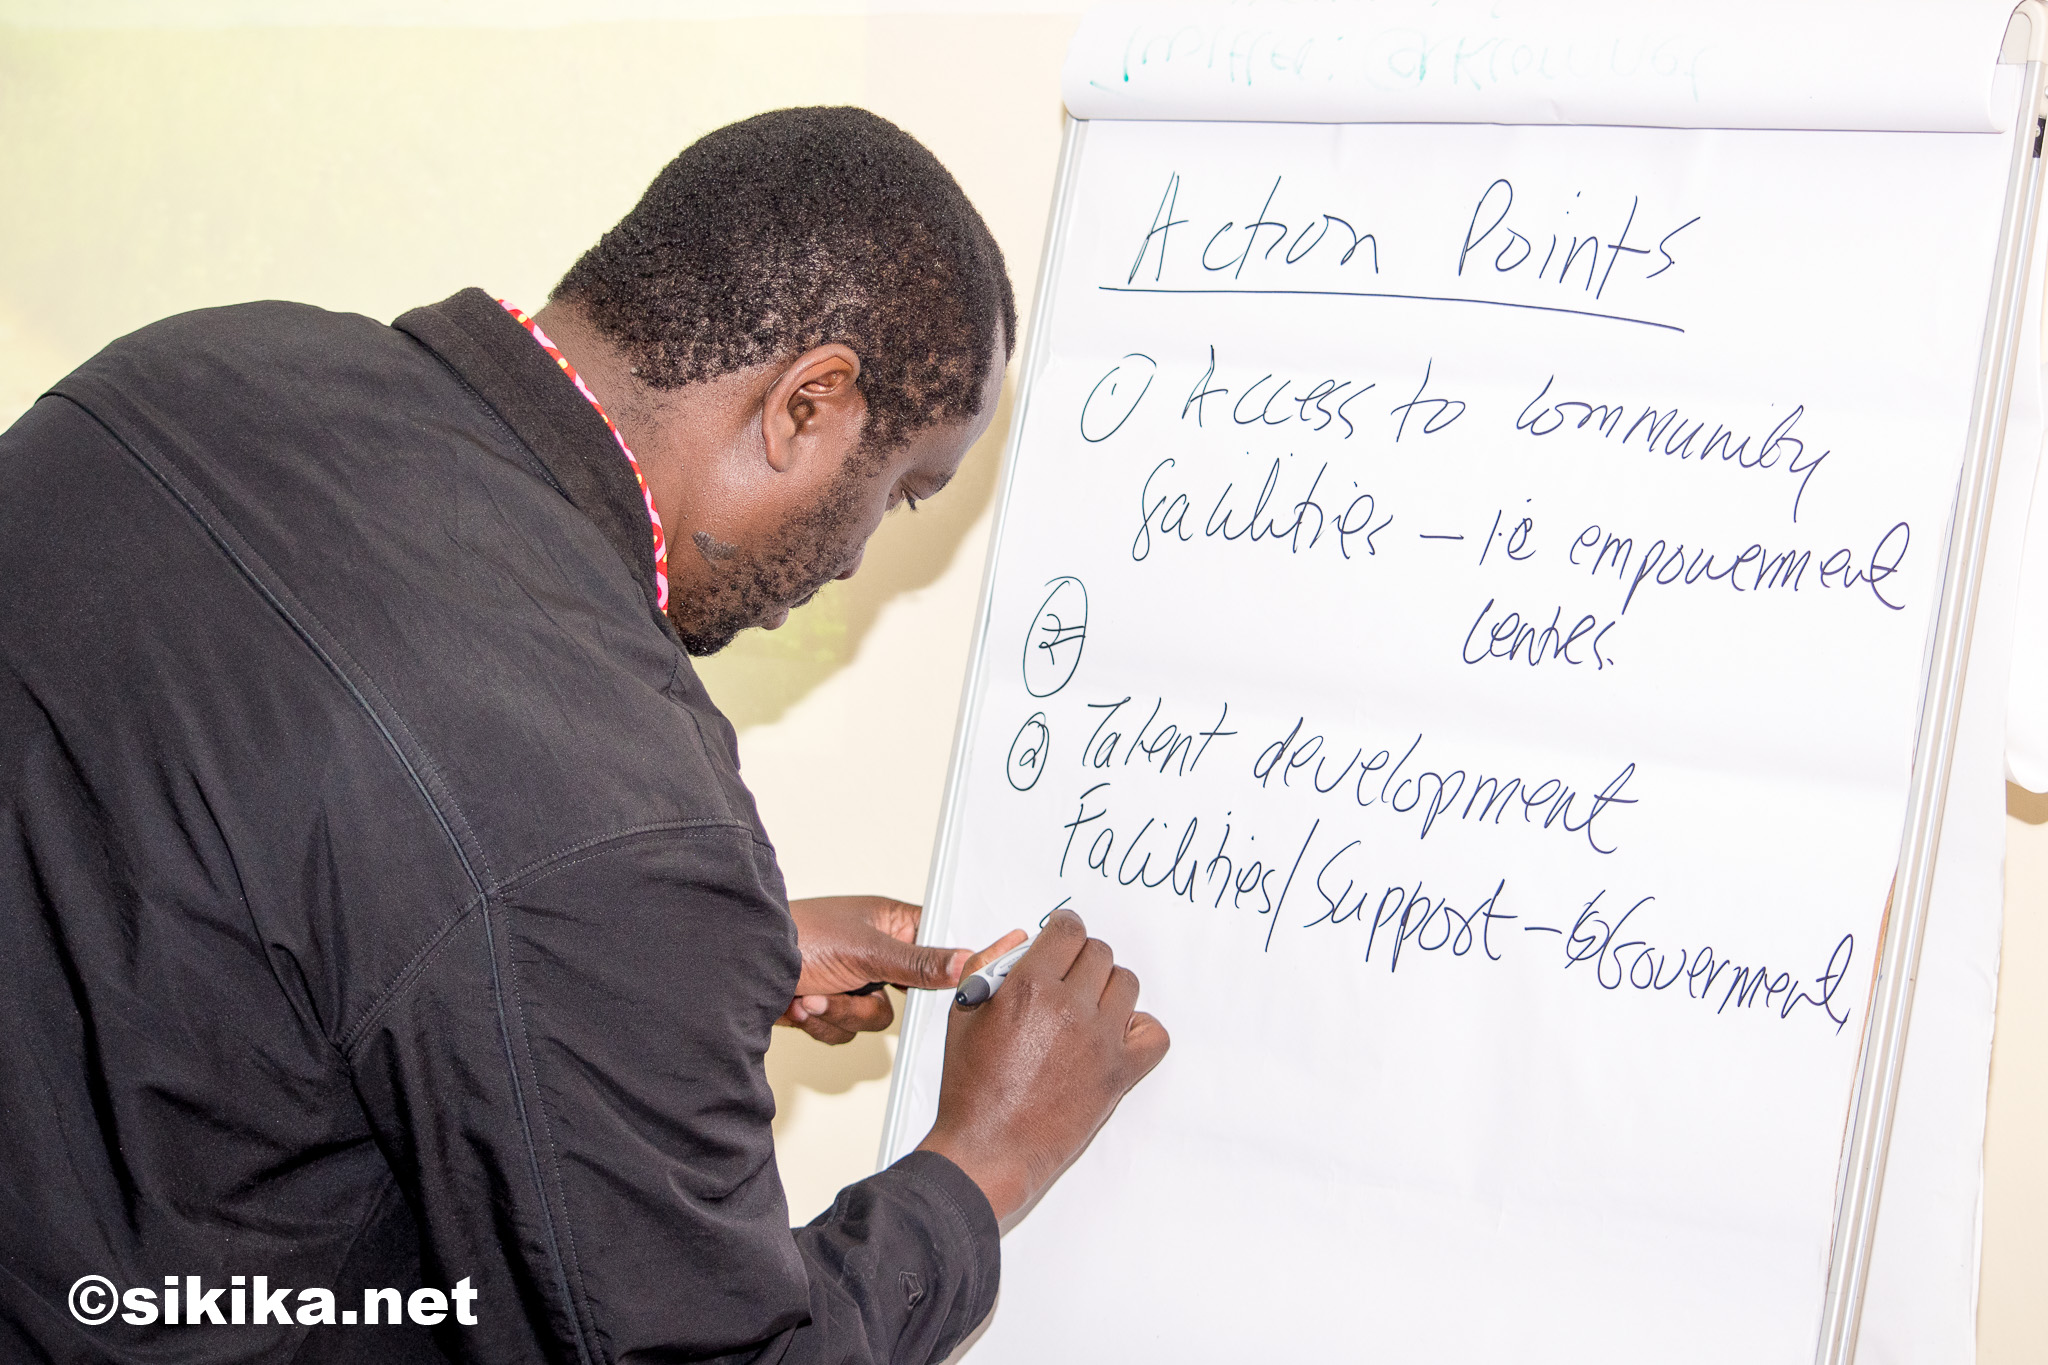 Action Points
① Access to community
facilities - i.e empowerment
centres.
② Talent development
Facilities/Support - Government,
©sikika.net